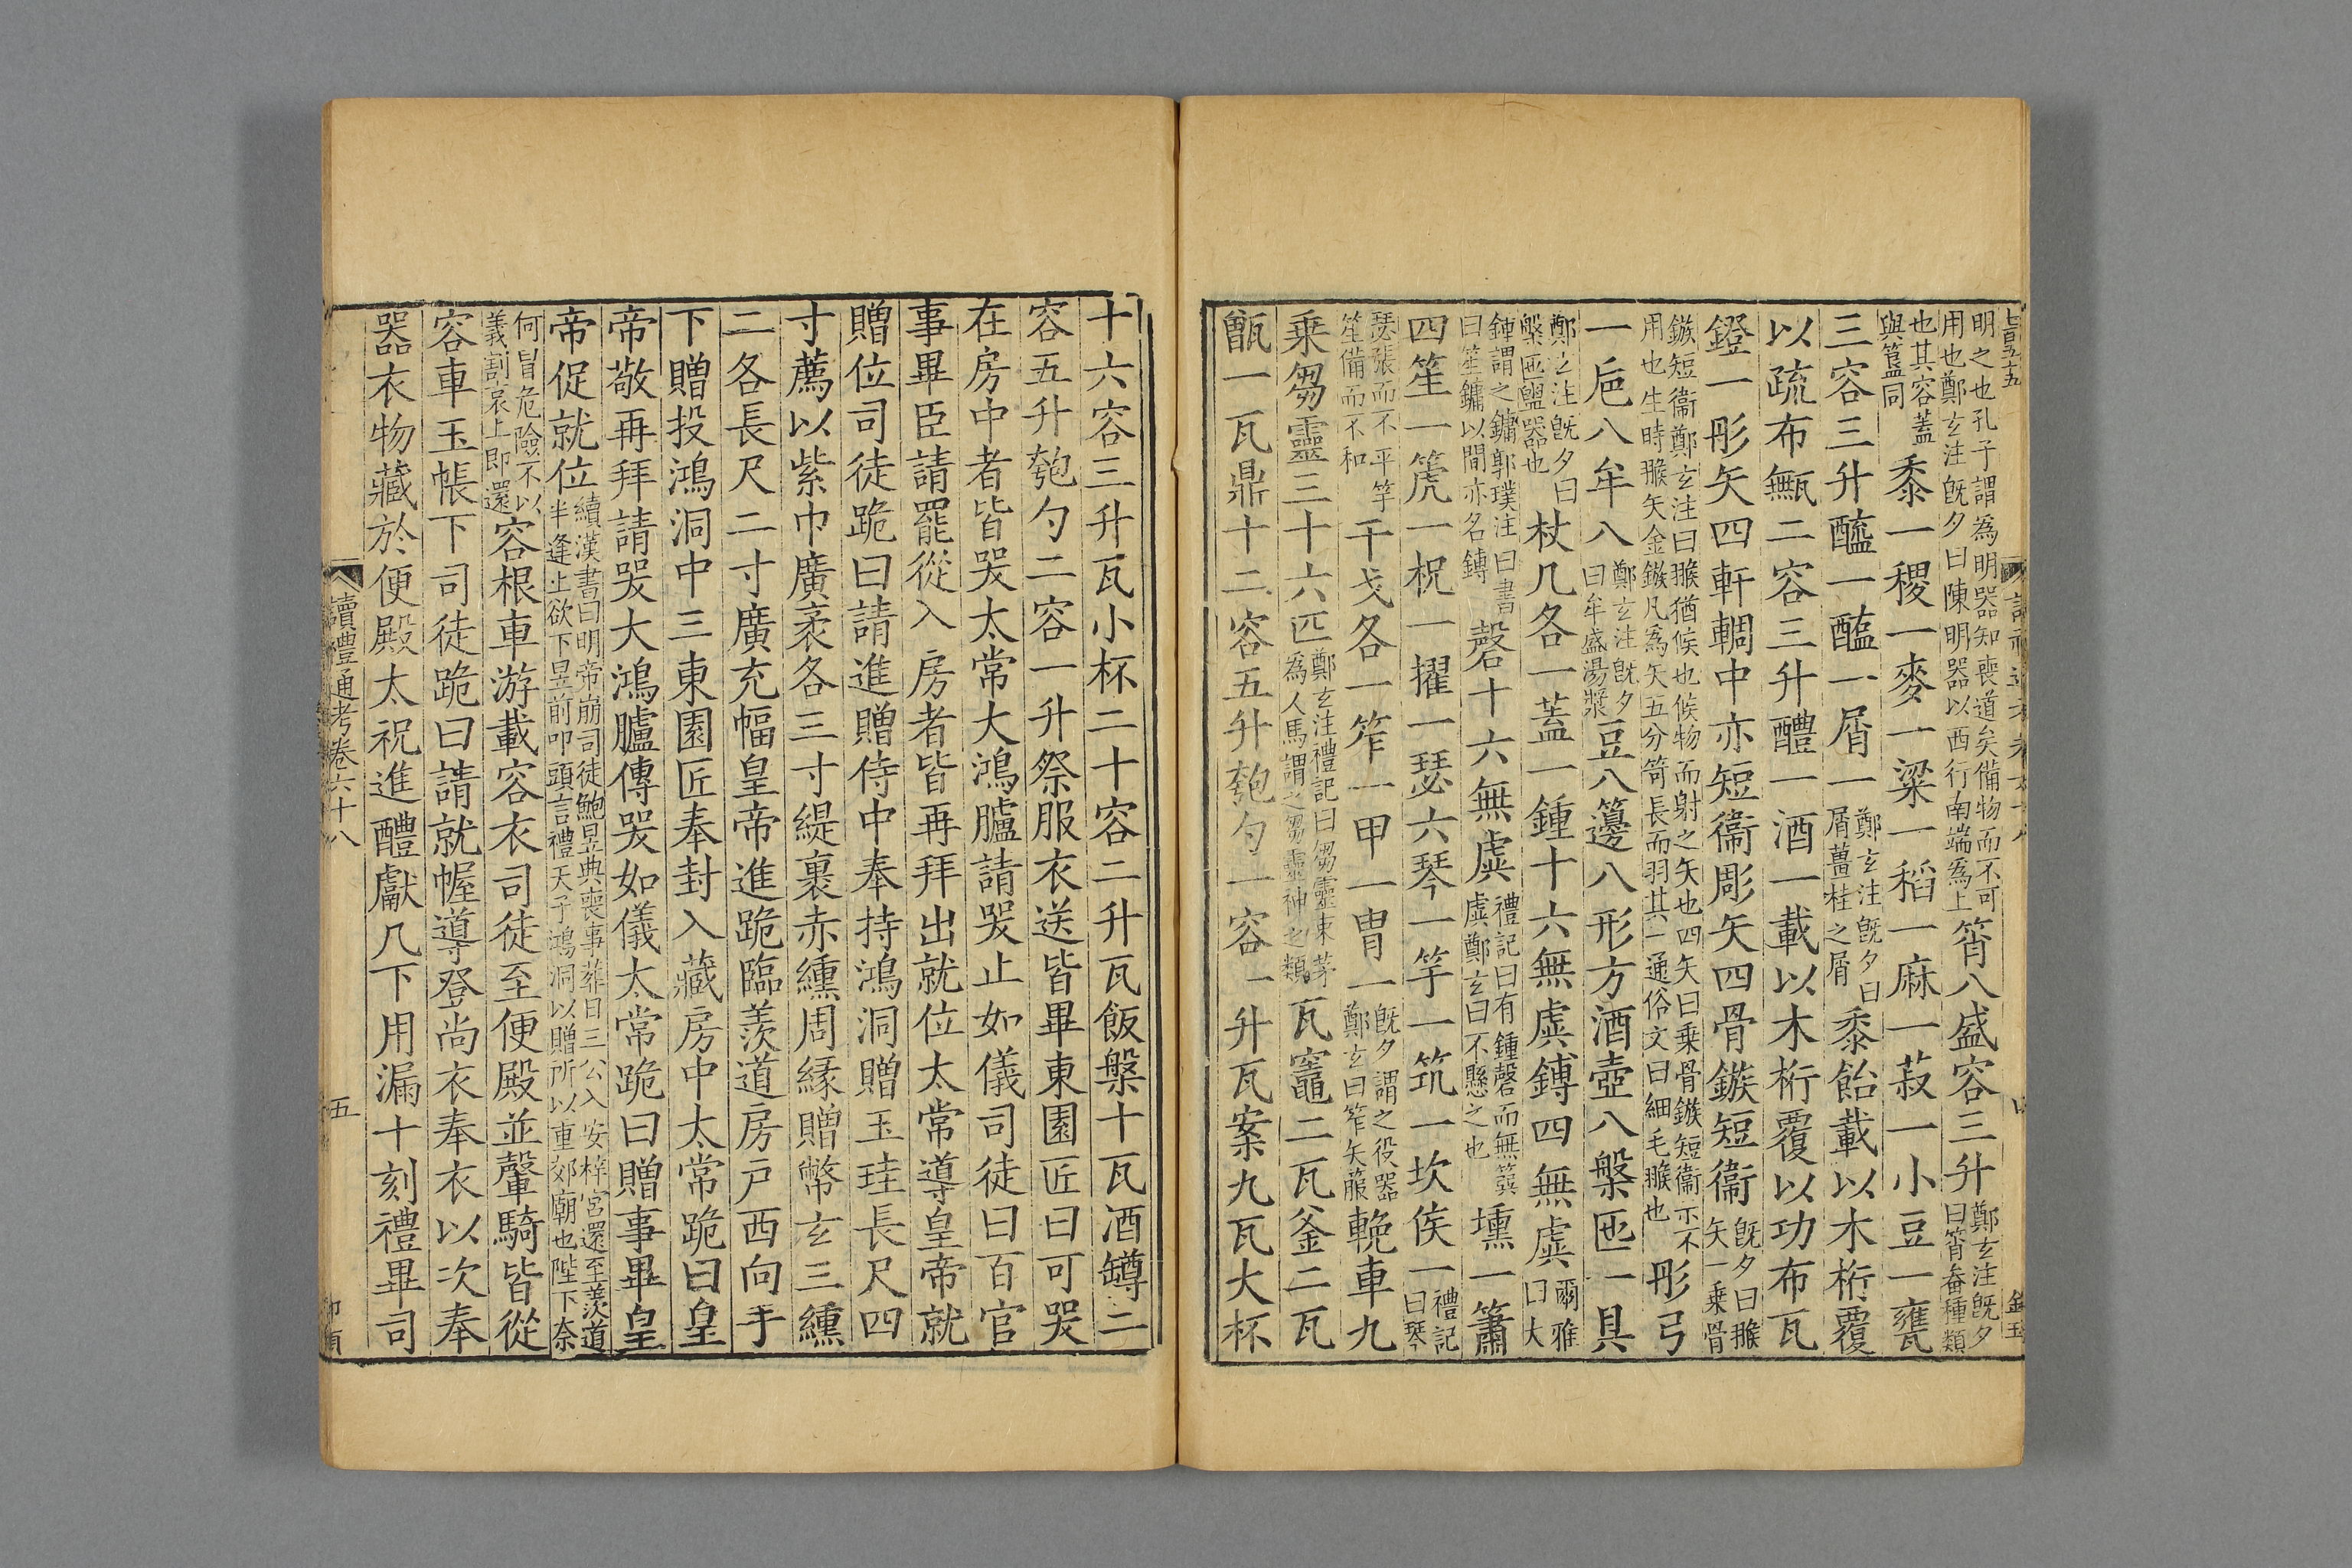 明之也孔子謂爲明器知喪道矣備物而不可
用也鄭玄注旣夕曰陳明器以西行南端爲上
筲八盛容三升
鄭玄注旣夕
曰筲畚種類
也其容蓋
與簋同
黍一稷一麥一粱一稻一麻一菽一小豆一甕
三容三升醯一醢一屑一
鄭玄注旣夕曰
屑薑桂之屑
黍飴載以木桁覆
以疏布甒二容三升醴一酒一載以木桁覆以功布瓦
鐙一彤矢四軒輖中亦短衞彫矢四骨鏃短衞
旣夕曰翭
矢一乗骨
鏃短衞鄭玄注曰翭猶候也候物而射之矢也四矢曰乗骨鏃短衞示不
用也生時翭矢金鏃凡爲矢五分笴長而羽其一通俗文曰細毛翭也
彤弓
一巵八牟八
鄭玄注旣夕
曰牟盛湯漿
豆八籩八形方酒壺八槃匜一具
鄭玄注旣夕曰
槃匜盥器也
杖几各一蓋一鍾十六無虡鎛四無虡
爾雅
曰大
鍾謂之鏞郭璞注曰書
曰笙鏞以間亦名鎛
磬十六無虡
禮記曰有鍾磬而無簨
虡鄭玄曰不懸之也
壎一簫
四笙一箎一柷一擢一瑟六琴一竽一筑一坎侯一
禮記
曰琴
瑟張而不平竽
笙備而不和
干戈各一笮一甲一胄一
旣夕謂之役器
鄭玄曰笮矢箙
輓車九
乗芻靈三十六匹
鄭玄注禮記曰芻靈束茅
爲人馬謂之芻靈神之類
瓦竈二瓦釜二瓦
甑一瓦鼎十二容五升匏勺一容一升瓦案九瓦大杯
十六容三升瓦小杯二十容二升瓦飯槃十瓦酒罇二
容五升匏勺二容一升祭服衣送皆畢東園匠曰可哭
在房中者皆哭太常大鴻臚請哭止如儀司徒曰百官
事畢臣請罷從入房者皆再拜出就位太常導皇帝就
贈位司徒跪曰請進贈侍中奉持鴻洞贈玉珪長尺四
寸薦以紫巾廣袤各三寸緹裏赤纁周緣贈幣玄三纁
二各長尺二寸廣充幅皇帝進跪臨羨道房戸西向手
下贈投鴻洞中三東園匠奉封入藏房中太常跪曰皇
帝敬再拜請哭大鴻臚傳哭如儀太常跪曰贈事畢皇
帝促就位
續漢書曰明帝崩司徒鮑昱典喪事葬日三公入安梓宮還至羨道
半逢上欲下昱前叩頭言禮天子鴻洞以贈所以重郊廟也陛下奈
何冒危險不以
義割哀上即還
容根車游載容衣司徒至便殿並轝騎皆從
容車玉帳下司徒跪曰請就幄導登尚衣奉衣以次奉
器衣物藏於便殿太祝進醴獻凡下用漏十刻禮畢司
讀禮通考卷六十八
五